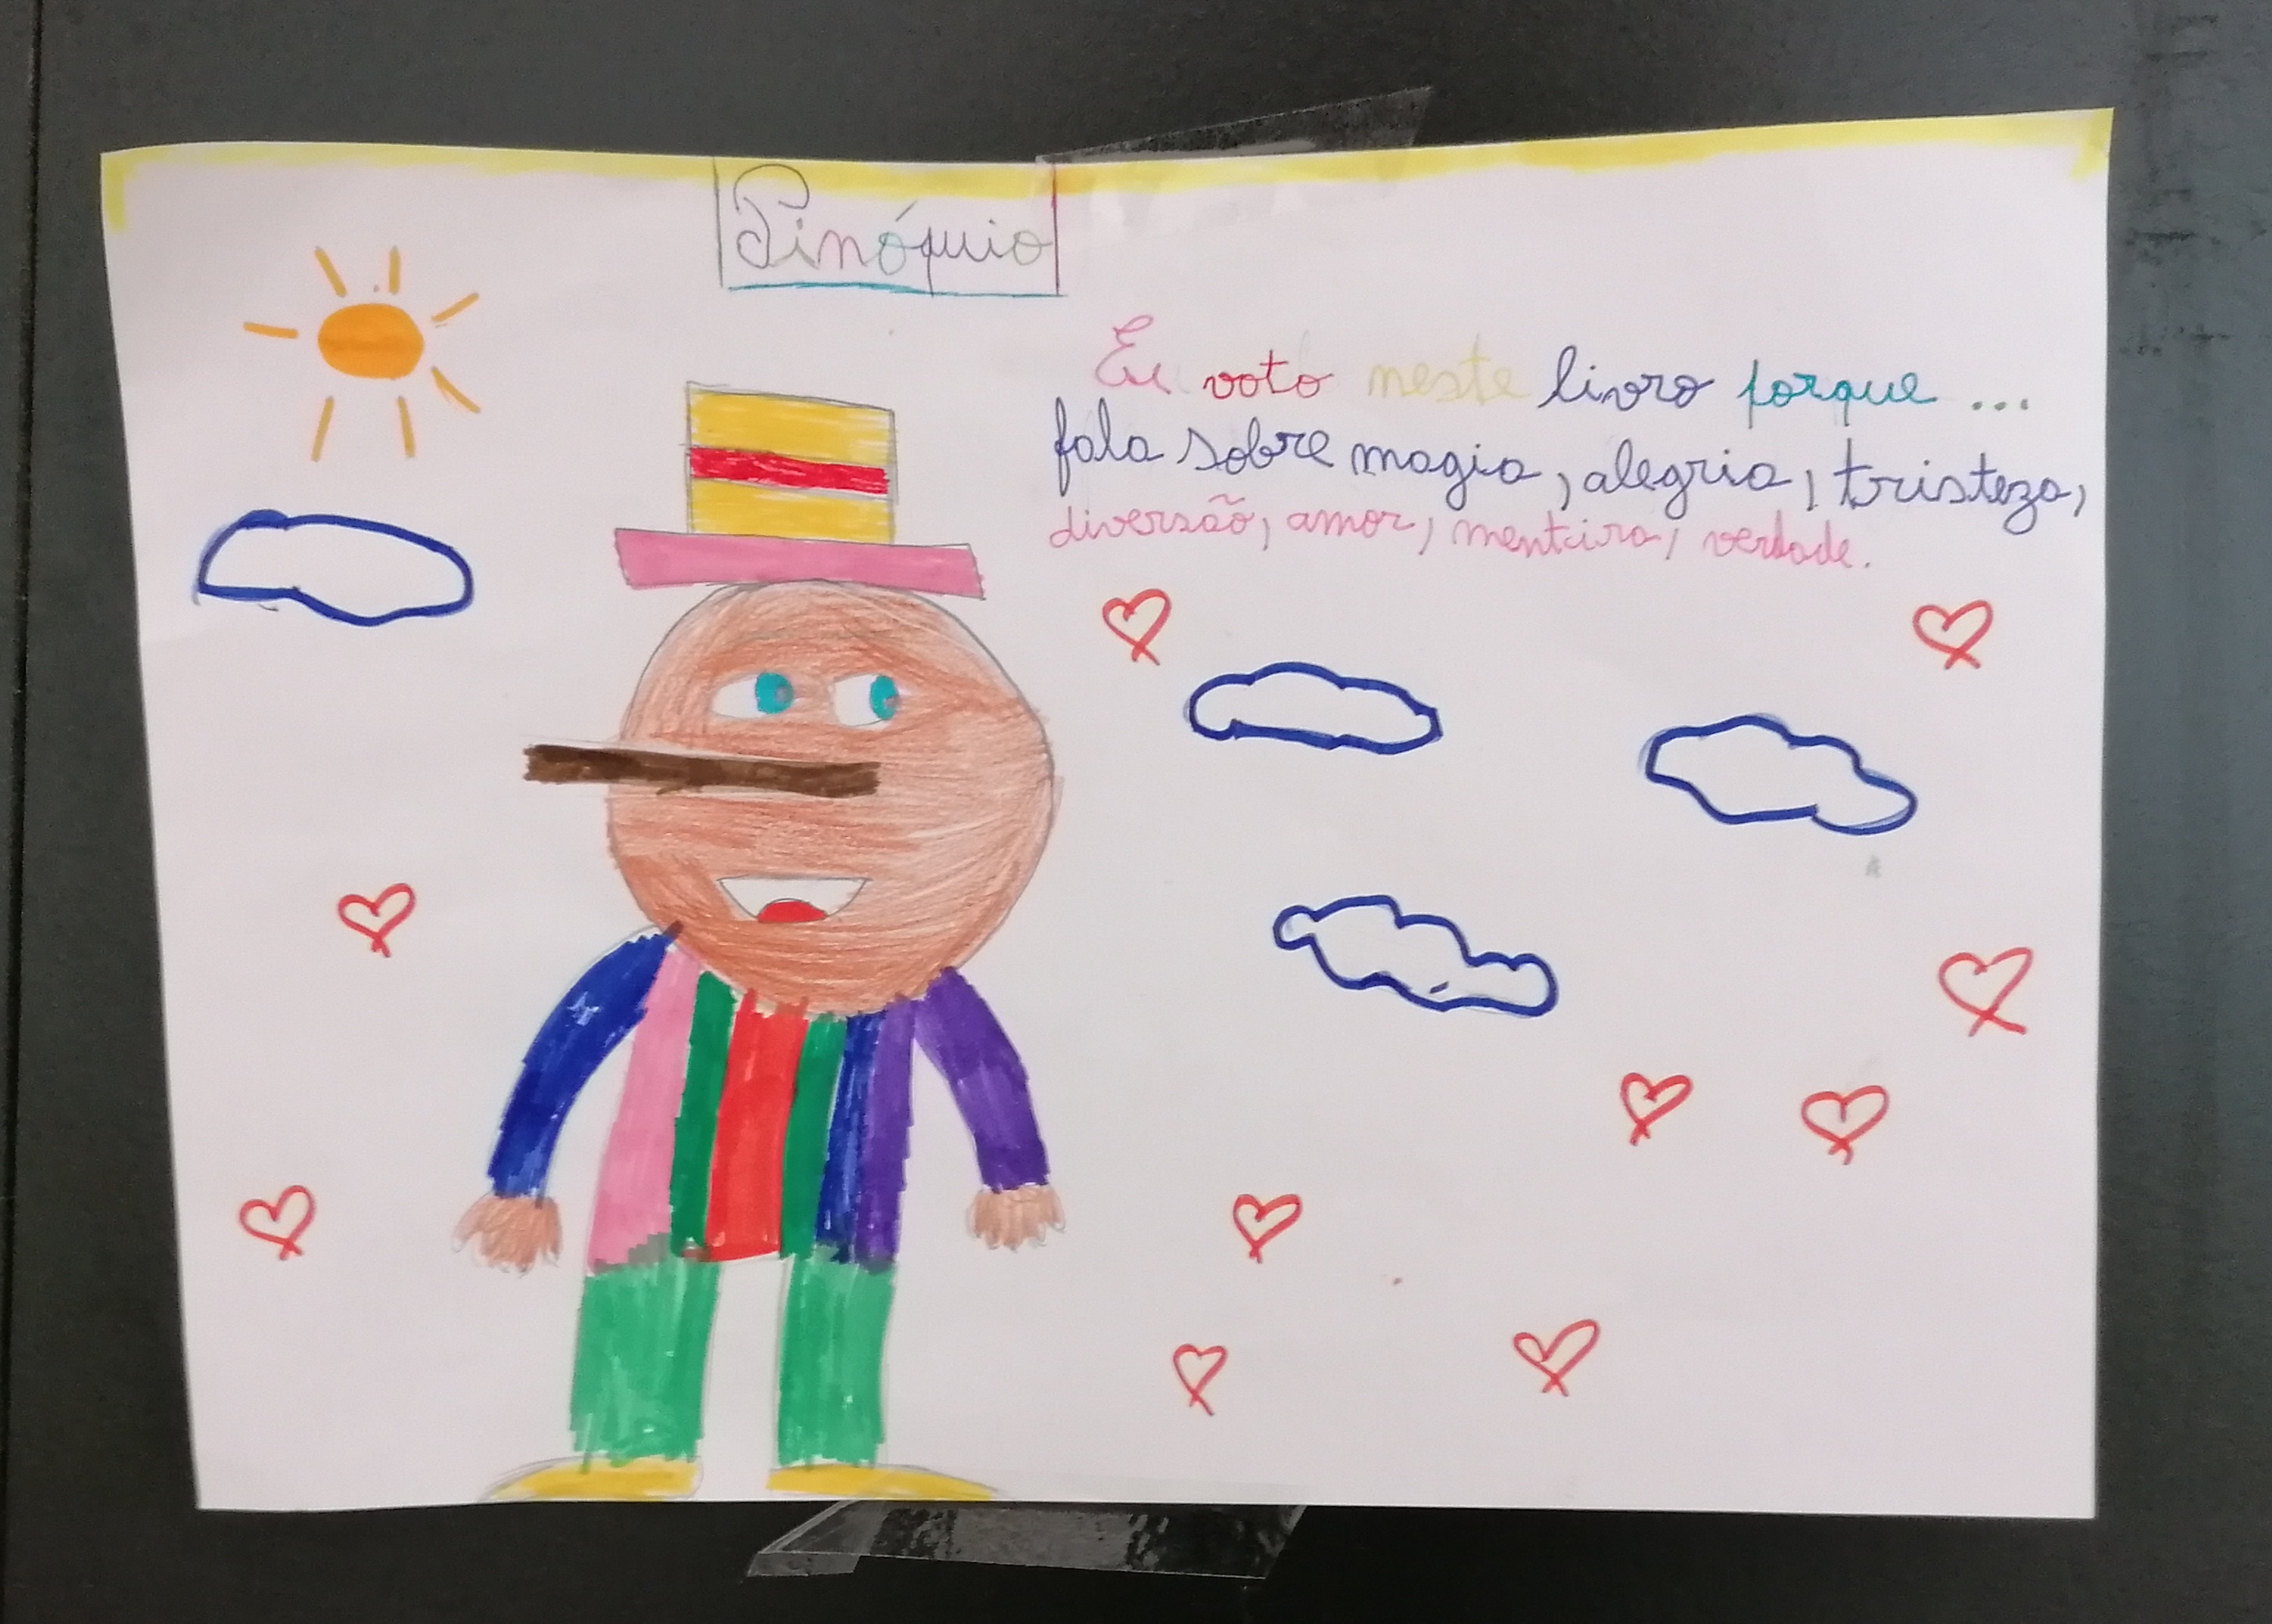 Pinóquio
Eu voto neste livro porque ...
fala sobre magia, alegria, tristeza,
diversão, amor, mentira, verdade.